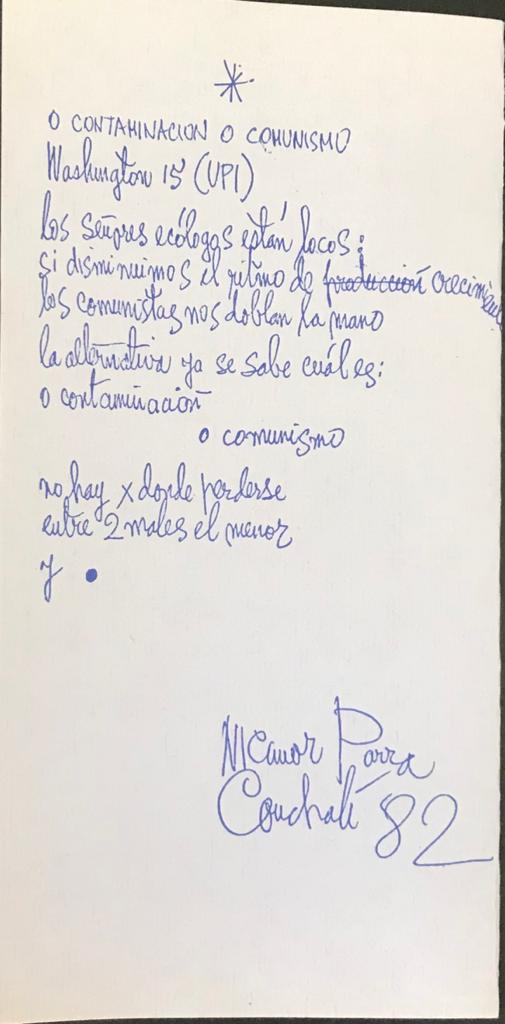 *
O CONTAMINACION O COMUNISMO
Washington 15 (UPI)
los señores ecólogos están locos:
si disminuimos el ritmo de producción crecimiento
los comunistas nos doblan la mano
la alternativa ya se sabe cuál es:
o contaminación
o comunismo
no hay x donde perderse
entre 2 males el menor
y •
Nicanor Parra
Conchalí '82